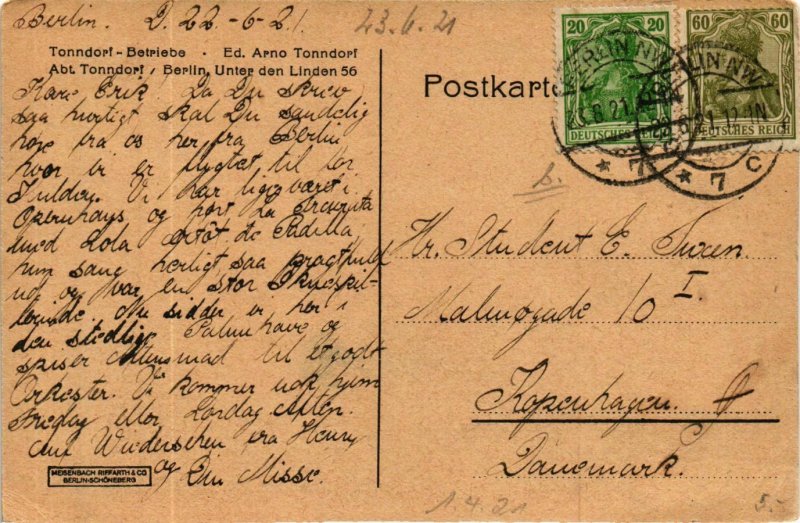 Berlin. D. 22-6-21.
23.6.21
Tonndorf-Betriebe · Ed. Arno Tonndorf
Abt. Tonndorf, Berlin, Unter den Linden 56
Kære Erik! Da Du skrev
saa hurtigt skal Du sandelig
høre fra os her fra Berlin
hvor vi er flygtet til for
Vi har lige været i
Operahaus og hørt La Traviata
med Lola Artôt de Padilla,
hun sang herligt, saa pragtfuld
ud og var en stor Skuespil-
lerinde. Nu sidder vi her i
den Palmehave og
spiser Aftensmad til et godt
Orkester. Vi kommer nok hjem
Fredag eller Lørdag Aften.
Auf Wiedersehen fra Henry
og Din Misse.
MEISENBACH RIFFARTH & CO
BERLIN-SCHÖNEBERG
Postkarte
20 20
DEUTSCHES REICH
60 60
DEUTSCHES REICH
BERLIN NW
23.6.21
* 7
BERLIN NW
23.6.21. 11-12 N
* 7 c
b.
Hr. Student E. Tuxen.
Malmøgade 10 I.
Kopenhagen. Ø
Danemark.
1.4.21
5.-